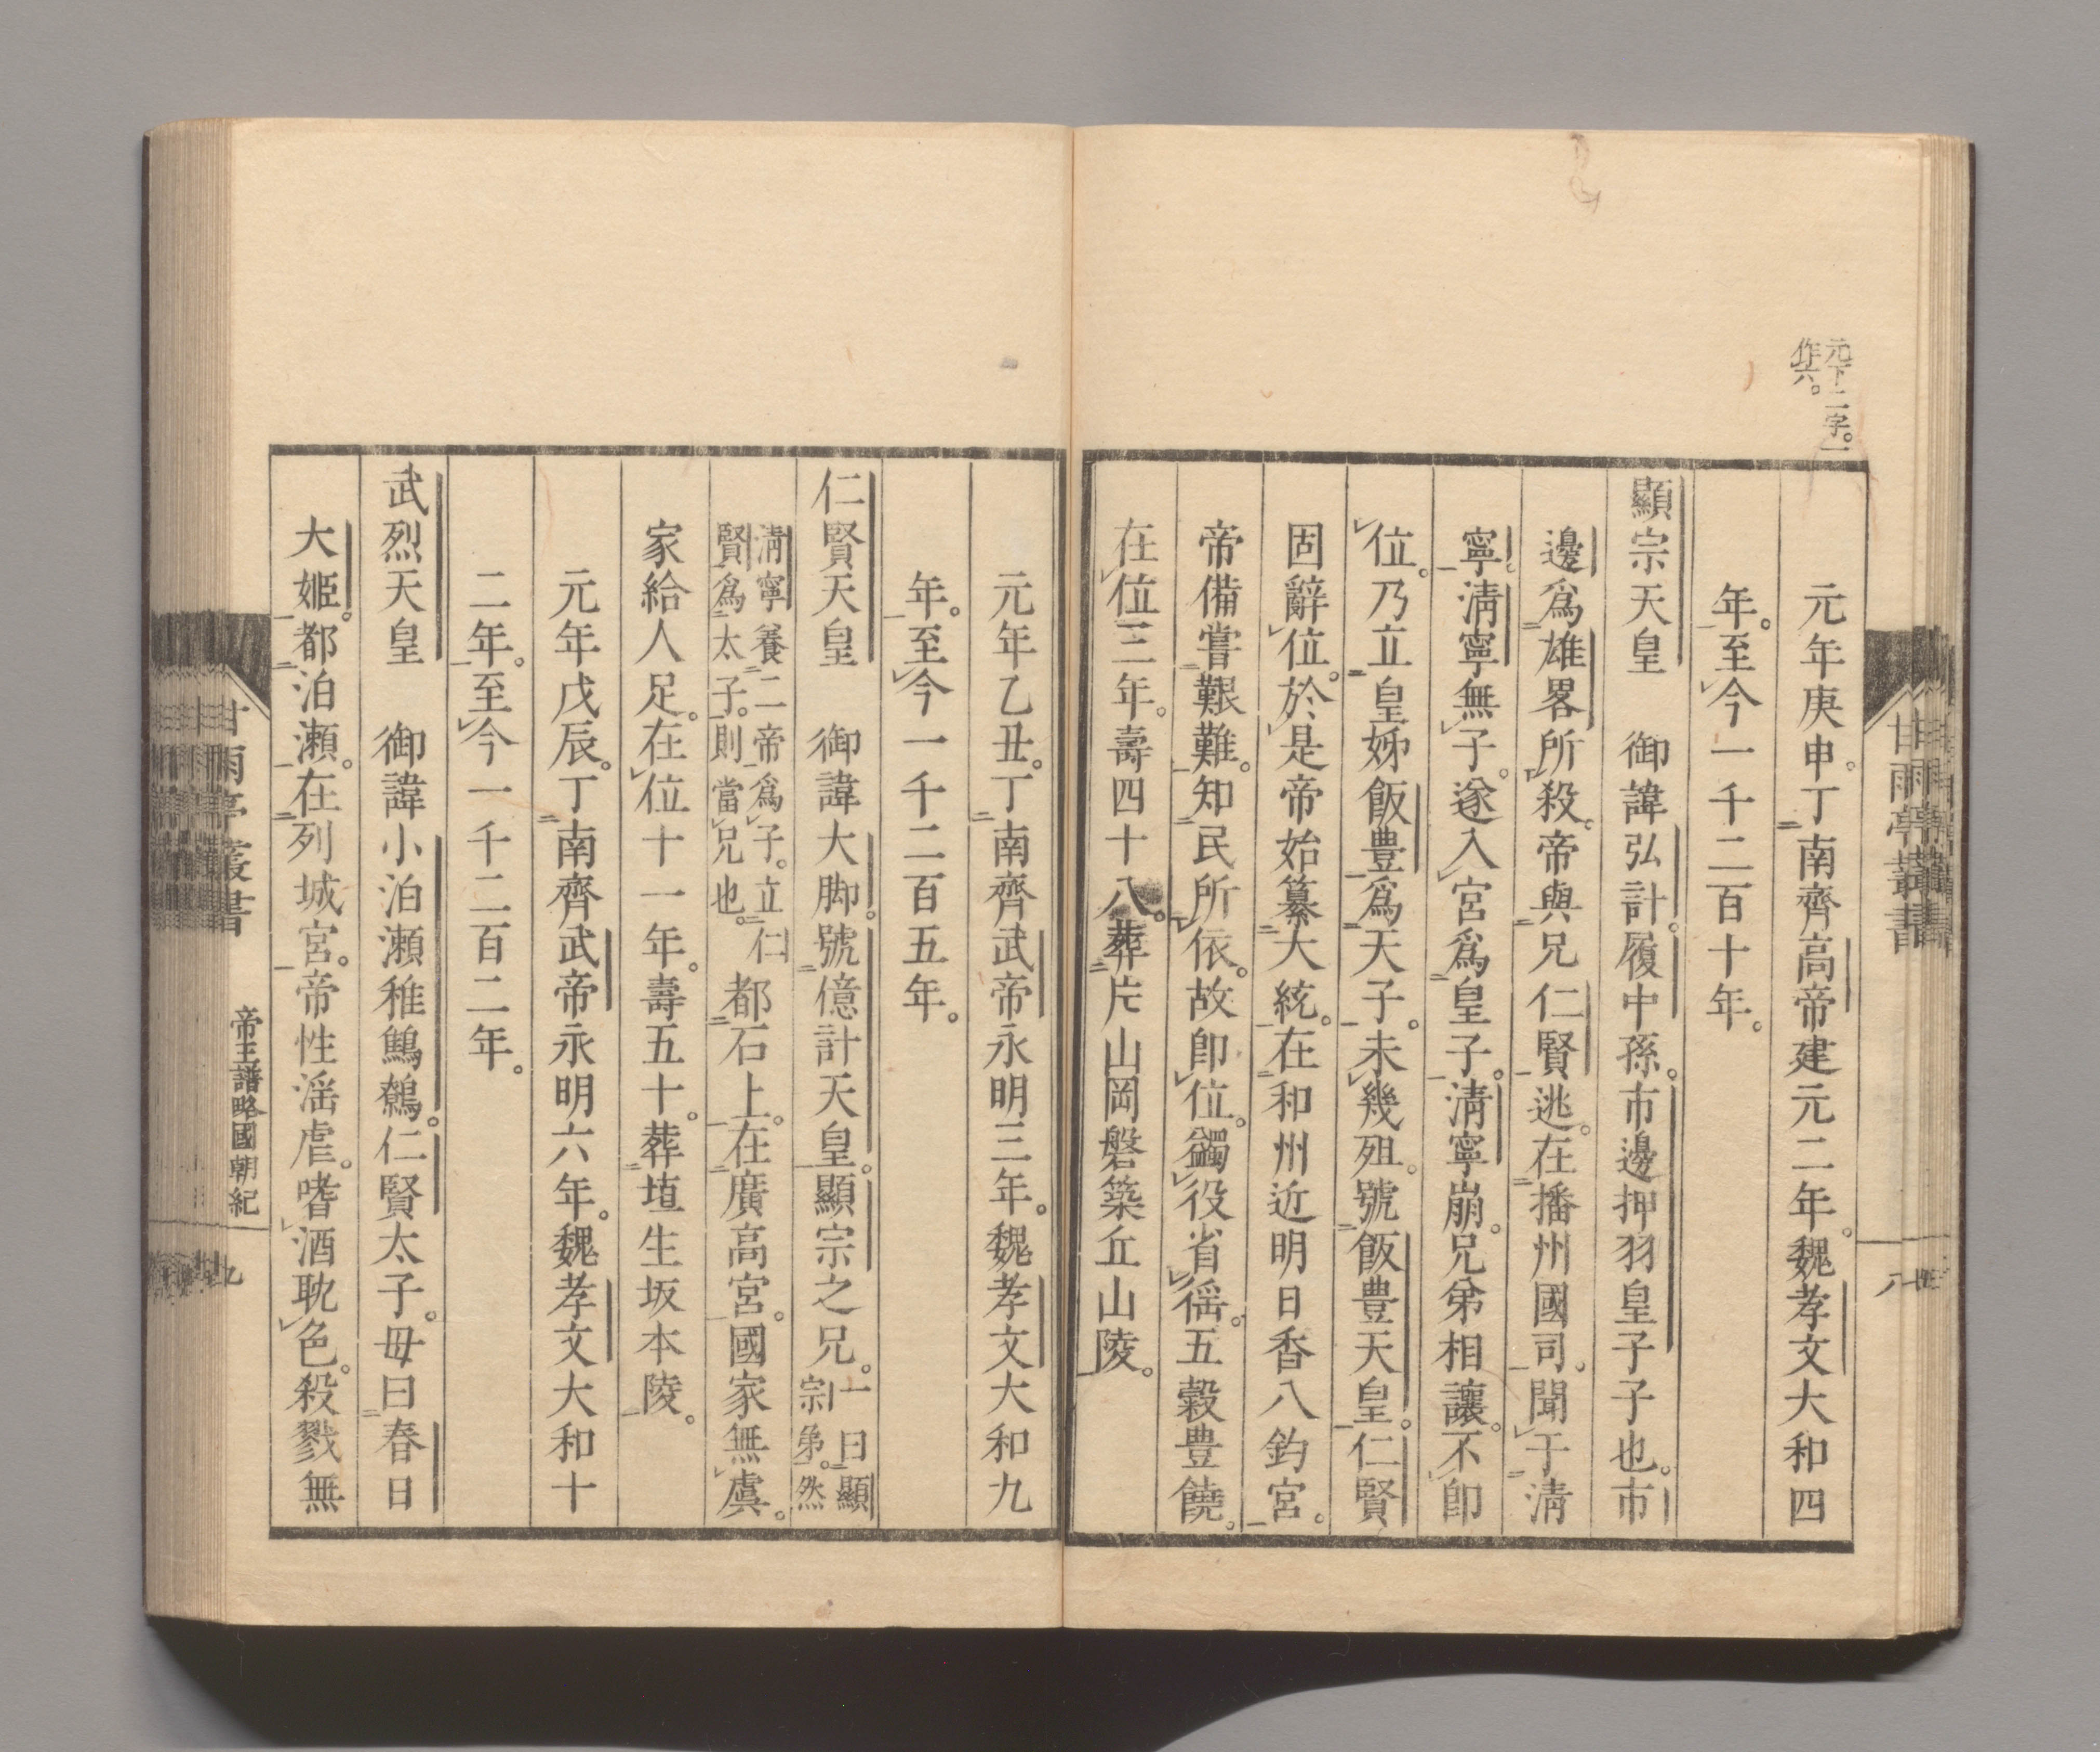 元下二字。一
作六。
元年庚申。丁南齊高帝建元二年。魏孝文大和四
年。至今一千二百十年。
顯宗天皇　御諱弘計。履中孫。市邊押羽皇子子也。市
邊爲雄畧所殺。帝與兄仁賢逃。在播州國司。聞于淸
寧。淸寧無子。遂入宮爲皇子。淸寧崩。兄弟相讓。不卽
位。乃立皇姊飯豊爲天子。未幾殂。號飯豊天皇。仁賢
固辭位。於是帝始纂大統。在和州近明日香八釣宮。
帝備嘗艱難。知民所依。故卽位。蠲役省徭。五穀豊饒。
在位三年。壽四十八。葬片山岡磐築丘山陵。
甘雨亭叢書
八
元年乙丑。丁南齊武帝永明三年。魏孝文大和九
年。至今一千二百五年。
仁賢天皇　御諱大脚。號億計天皇。顯宗之兄。一曰顯
宗弟。然
淸寧養二帝爲子。立仁
賢爲太子。則當兄也。都石上。在廣高宮。國家無虞。
家給人足。在位十一年。壽五十。葬埴生坂本陵。
元年戊辰。丁南齊武帝永明六年。魏孝文大和十
二年。至今一千二百二年。
武烈天皇　御諱小泊瀨稚鷦鷯。仁賢太子。母曰春日
大姬。都泊瀨。在列城宮。帝性滛虐。嗜酒耽色。殺戮無
甘雨亭叢書
帝王譜略國朝紀
九